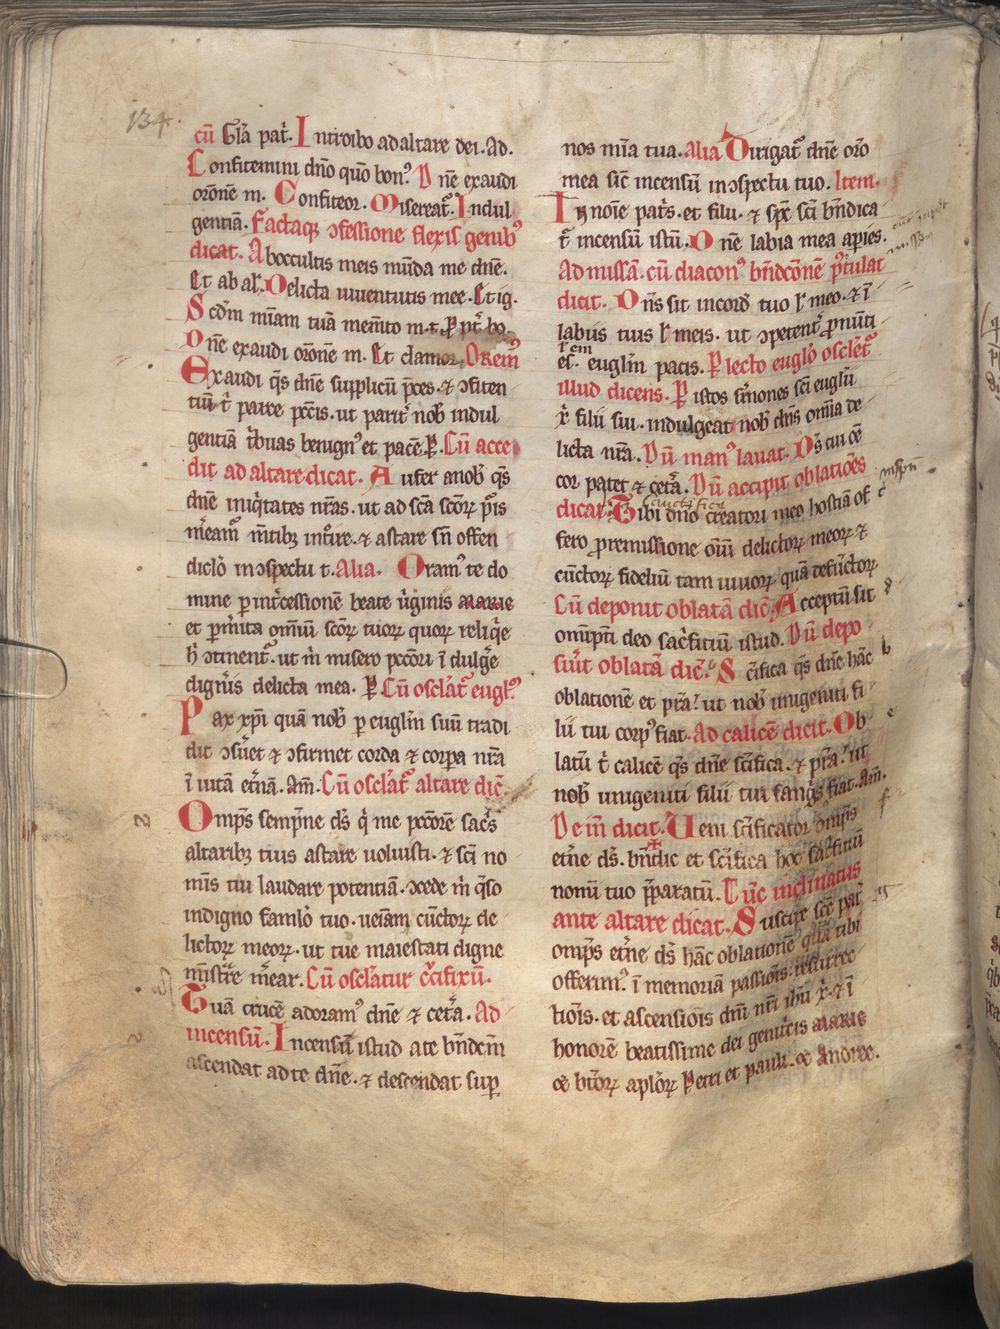 134.
cū Gl̄a pat̄. Introibo ad altare dei. Ad.
Confitemini dn̄o qūo bon᷒. Dn̄e exaudi
orōnē m. Confiteor. Misereat̄. Indul
gentiā. Factaqȝ ɔfessione flexis genib᷒
dicat. Ab occultis meis mūda me dn̄e.
Et ab al̄. Delicta iuuentutis mee. Et ig.
Scd̄m mīam tuā mem̄to m. t. ꝑ pt̄ bo.
Dn̄e exaudi orōnē m. Et clamor. Orem᷒
Exaudi q̄s dn̄e supplicū p̄ces. ⁊ ɔfiten
tiū t̄ parce pc̄cis. ut parit̄ nob̄ indul
gentiā t̄buas benign᷒ et pacē. ꝑ. Cū acce
dit ad altare dicat. Aufer a nob̄ q̄s
dn̄e iniq̄tates nr̄as. ut ad sc̄a sc̄oꝝ p̄is
m̄eam᷒ m̄tibȝ int̄ire. ⁊ astare sn̄ offen
diclo in ɔspectu t. Alia. Oram᷒ te do
mine ꝑ int̄cessionē beate ūginis marie
et ꝑ m̄ita omīū sc̄oꝝ tuoꝝ quoꝝ reliq̄e
h̄ ɔtinent̄. ut m̄ misero pc̄cori īdulḡe
dign̄is delicta mea. ꝑ Cū oscl̄at̄ eugl᷒.
Pax xp̄i quā nob̄ ꝑ eugl̄m suū tradi
dit ɔs̄uet ⁊ ɔfirmet corda ⁊ corꝑa nr̄a
ī uitā et̄nā. Am̄. Cū oscl̄at̄ altare dic̄.
Omp̄s sempr̄ne ds̄ q̄ me pc̄corē sac̄s
altaribȝ tuis astare uoluisti. ⁊ sc̄i no
mīs tui laudare potentiā. ɔcede m̄ q̄so
indigno famlo tuo. ueīam cūctoꝝ de
lictoꝝ meoꝝ. ut tue maiestati digne
mīst̄re m̄ear. Cū osclatur c̄cifixū.
Tuā crucē adoram᷒ dn̄e ⁊ cet̄a. Ad
incensū. Incensū istud a te bn̄dcm̄
ascendat ad te dn̄e. ⁊ descendat suꝑ
nos mīa tua. Alia Dirigat̄ dn̄e or̄o
mea sic̄ incensū in ɔspectu tuo. Item.
In noīe pat̄s. et filii. ⁊ sp̄c sc̄i bn̄dica
t̄ incensū istū. Dn̄e labia mea apies.
Ad missā. cū diacon᷒ bn̄dcōnē p̄tulat
dicit. Dn̄s sit in cord̄ tuo l̄ meo. ⁊ ī
labiis tuis l̄ meis. ut ɔpetent̄ ꝓnūti
l̄ em
es̄. eugl̄m pacis. ꝑ lecto euglo oscl̄et̄
illud dicens. ꝑ istos s̄mones sc̄i eugl̄ii
x̄ filii sui. indulgeat nob̄ dn̄s omīa de
licta nr̄a. Dū man᷒ lauat. Ds̄ cui oē
cor patet ⁊ cet̄a. Dū accipit oblationes
dicat. Tibi dn̄o creatori meo hostiā of
fero ꝓ remissione oīū delictoꝝ meoꝝ ⁊
cūctoꝝ fideliū tam uiuoꝝ quā defūctoꝝ
Cū deponit oblatā dic̄. Acceptū sit
omīpn̄ti deo sac̄ficiū istud. Dū depo
sūit oblatā dic̄. Sc̄ifica q̄s dn̄e hāc
oblationē et p̄ra. ut nob̄ unigeniti fi
lii tui corp᷒ fiat. Ad calicē dicit. Ob
latū t̄ calicē q̄s dn̄e sc̄ifica. ⁊ p̄ra. ut
nob̄ unigeniti filii tui sang᷒s fiat. Am̄.
Deīn dicit. Ueni sc̄ificator omp̄s
et̄ne ds̄. bn̄dic et sc̄ifica hoc sac̄ficiū
nomī tuo p̄paratū. Tūc inclinatus
ante altare dicat. Suscipe sc̄e pat̄
omp̄s et̄ne ds̄ hāc oblationē quā tibi
offerim᷒. ī memoriā passiōis resurrec
tiōis. et ascensiōis dn̄i nr̄i ih̄u x̄. ⁊ ī
honorē beatissime dei genit̄cis marie
⁊ bt̄oꝝ aploꝝ Petri et pauli. ⁊ Andree.